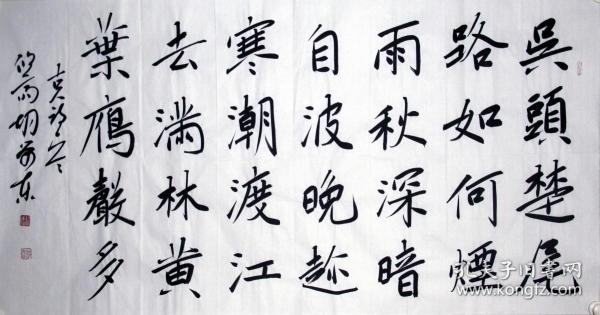 吳頭楚尾
路如何煙
雨秋深暗
自波晚趂
寒潮渡江
去滿林黄
葉鴈聲多
孔夫子旧书网
www.kongfz.com